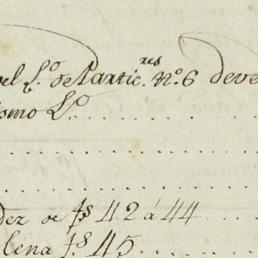 el L.º de Partic.res n.º 6 deve
ismo L.º
dez de fs 42 á 44
lena fs. 45